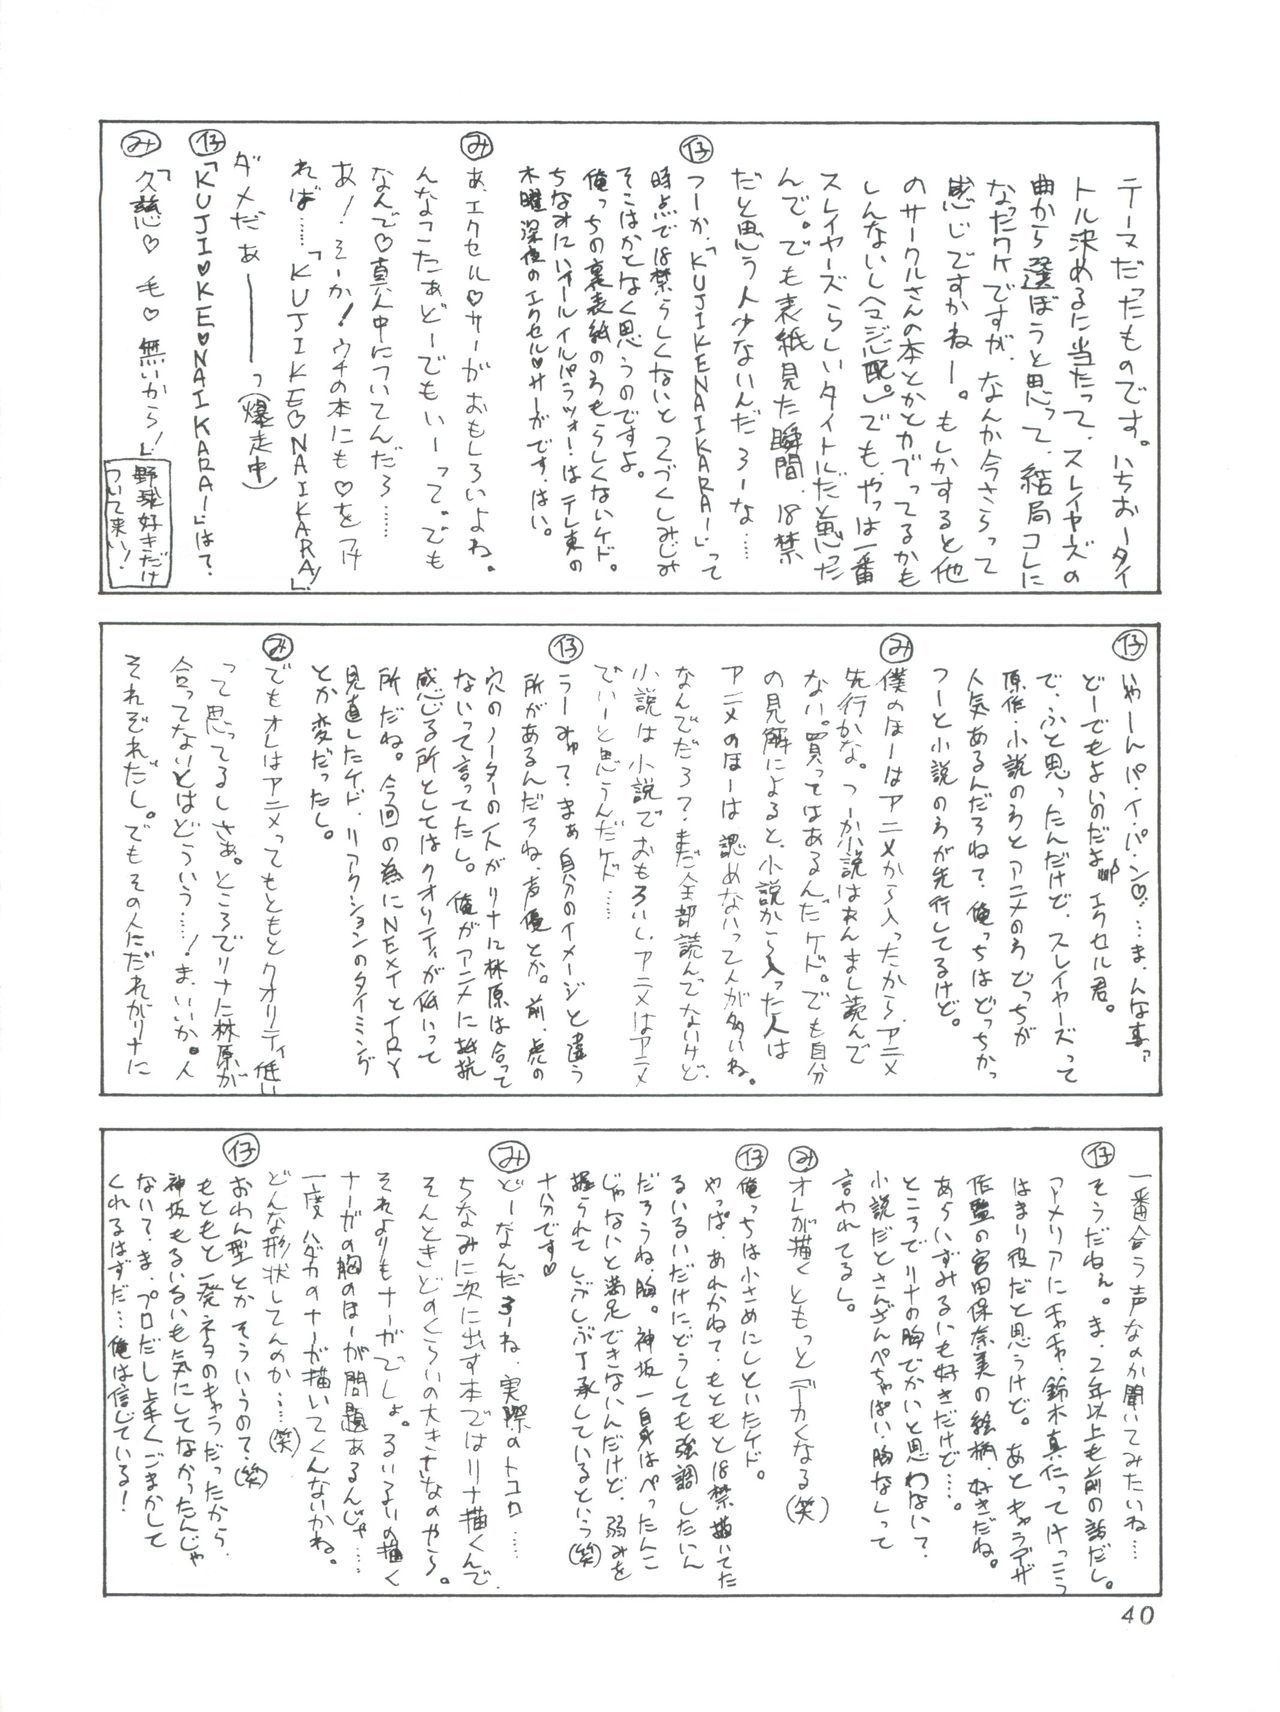 テーマだったものです。いちおータイ
トル決めるに当たって、スレイヤーズの
曲から選ぼうと思って、結局コレに
なったワケですが、なんか今さらって
感じですかねー。もしかすると他
のサークルさんの本とかとかぶってるかも
しんないし(マジ心配。)でも、やっぱ一番
スレイヤーズらしいタイトルだと思った
んで。でも表紙見た瞬間、18禁
だと思う人少ないんだろーな……
仔 つーか、「KUJIKENAIKARA!」って
時点で18禁らしくないとつくづくしみじみ
そこはかとなく思うのですよ。
俺っちの裏表紙のろもらしくないケド。
ちなみにハィール イルパラッツォ!はテレ東の
木曜深夜のエクセル♡サーガです、はい。
み あ、エクセル♡サーガおもしろいよね。
んなこたぁどーでもいーって。でも
なんで♡真ん中についてんだろ……
あ!そーか!ウチの本にも♡をつけ
れば……「KUJIKE♡NAIKARA!」
ダメだぁ━━━っ(爆走中)
仔 「KUJI♡KE♡NAIKARA!」は?
み 「久慈♡毛♡無いから!」
野球好きだけ
ついて来い!
仔 いやーんパ・イ・パ・ン♡…ま、んな事ァ
どーでもよいのだよ エクセル君。
で、ふと思ったんだけど、スレイヤーズって
原作・小説のろとアニメのろどっちが
人気あるんだろね?俺っちはどっちかっ
つーと小説のろが先行してるけど。
み 僕のほーはアニメから入ったから、アニメ
先行かな。つーか小説はあんまし読んで
ない。買ってはあるんだケド。でも自分
の見解によると、小説から入った人は
アニメのほーは認めないって人が多いね。
なんでだろ?まだ全部読んでないけど、
小説は小説でおもろいし、アニメはアニメ
でいーと思うんだケド……
仔 うーみゅ?まぁ自分のイメージと違う
所があるんだろね、声優とか。前、虎の
穴のノーターの人がリナに林原は合って
ないって言ってたし。俺がアニメに抵抗
感じる所としてはクオリティが低いって
所だね。今回の為にNEXTとTRY
見直したケド、リアクションのタイミング
とか変だったし。
み でもオレはアニメってもともとクオリティ低い
って思ってるしさぁ。ところでリナに林原が
合ってないとはどういう……!ま、いいか。人
それぞれだし。でもその人にだれがリナに
一番合う声なのか聞いてみたいね…
仔 そうだねぇ。ま、2年以上も前の話だし。
アメリアにチャチャ・鈴木真仁ってけっこう
はまり役だと思うけど。あとキャラデザ
作監の宮田保奈美の絵柄、好きだね。
あらいずみるいも好きだけど…。
ところでリナの胸でかいと思わない?
小説だとさんざんぺちゃぱい、胸なしって
言われてるし。
み オレが描くともっとデーカくなる(笑)
仔 俺っちは小さめにしといたケド。
やっぱ、あれかね?もともと18禁描いてた
るいるいだけに、どうしても強調したいん
だろうね、胸。神坂一自身はぺったんこ
じゃないと満足できないんだけど、弱みを
握られてしぶしぶ了承しているという(笑)
十八分です♡
み どーなんだろーね、実際のトコロ……
ちなみに次に出す本ではリナ描くんで
そんときどのくらいの大きさなのやら。
それよりもナーガでしょ。るいるいの描く
ナーガの胸のほーが問題あるんじゃ……
一度、ハダカのナーガ描いてくんないかね。
どんな形状してんのか……(笑)
仔 おわん型とかそういうの?(笑)
もともと一発ネタのキャラだったから、
神坂もるいるいも気にしてなかったんじゃ
ない?ま、プロだし上手くごまかして
くれるはずだ…俺は信じている!
40